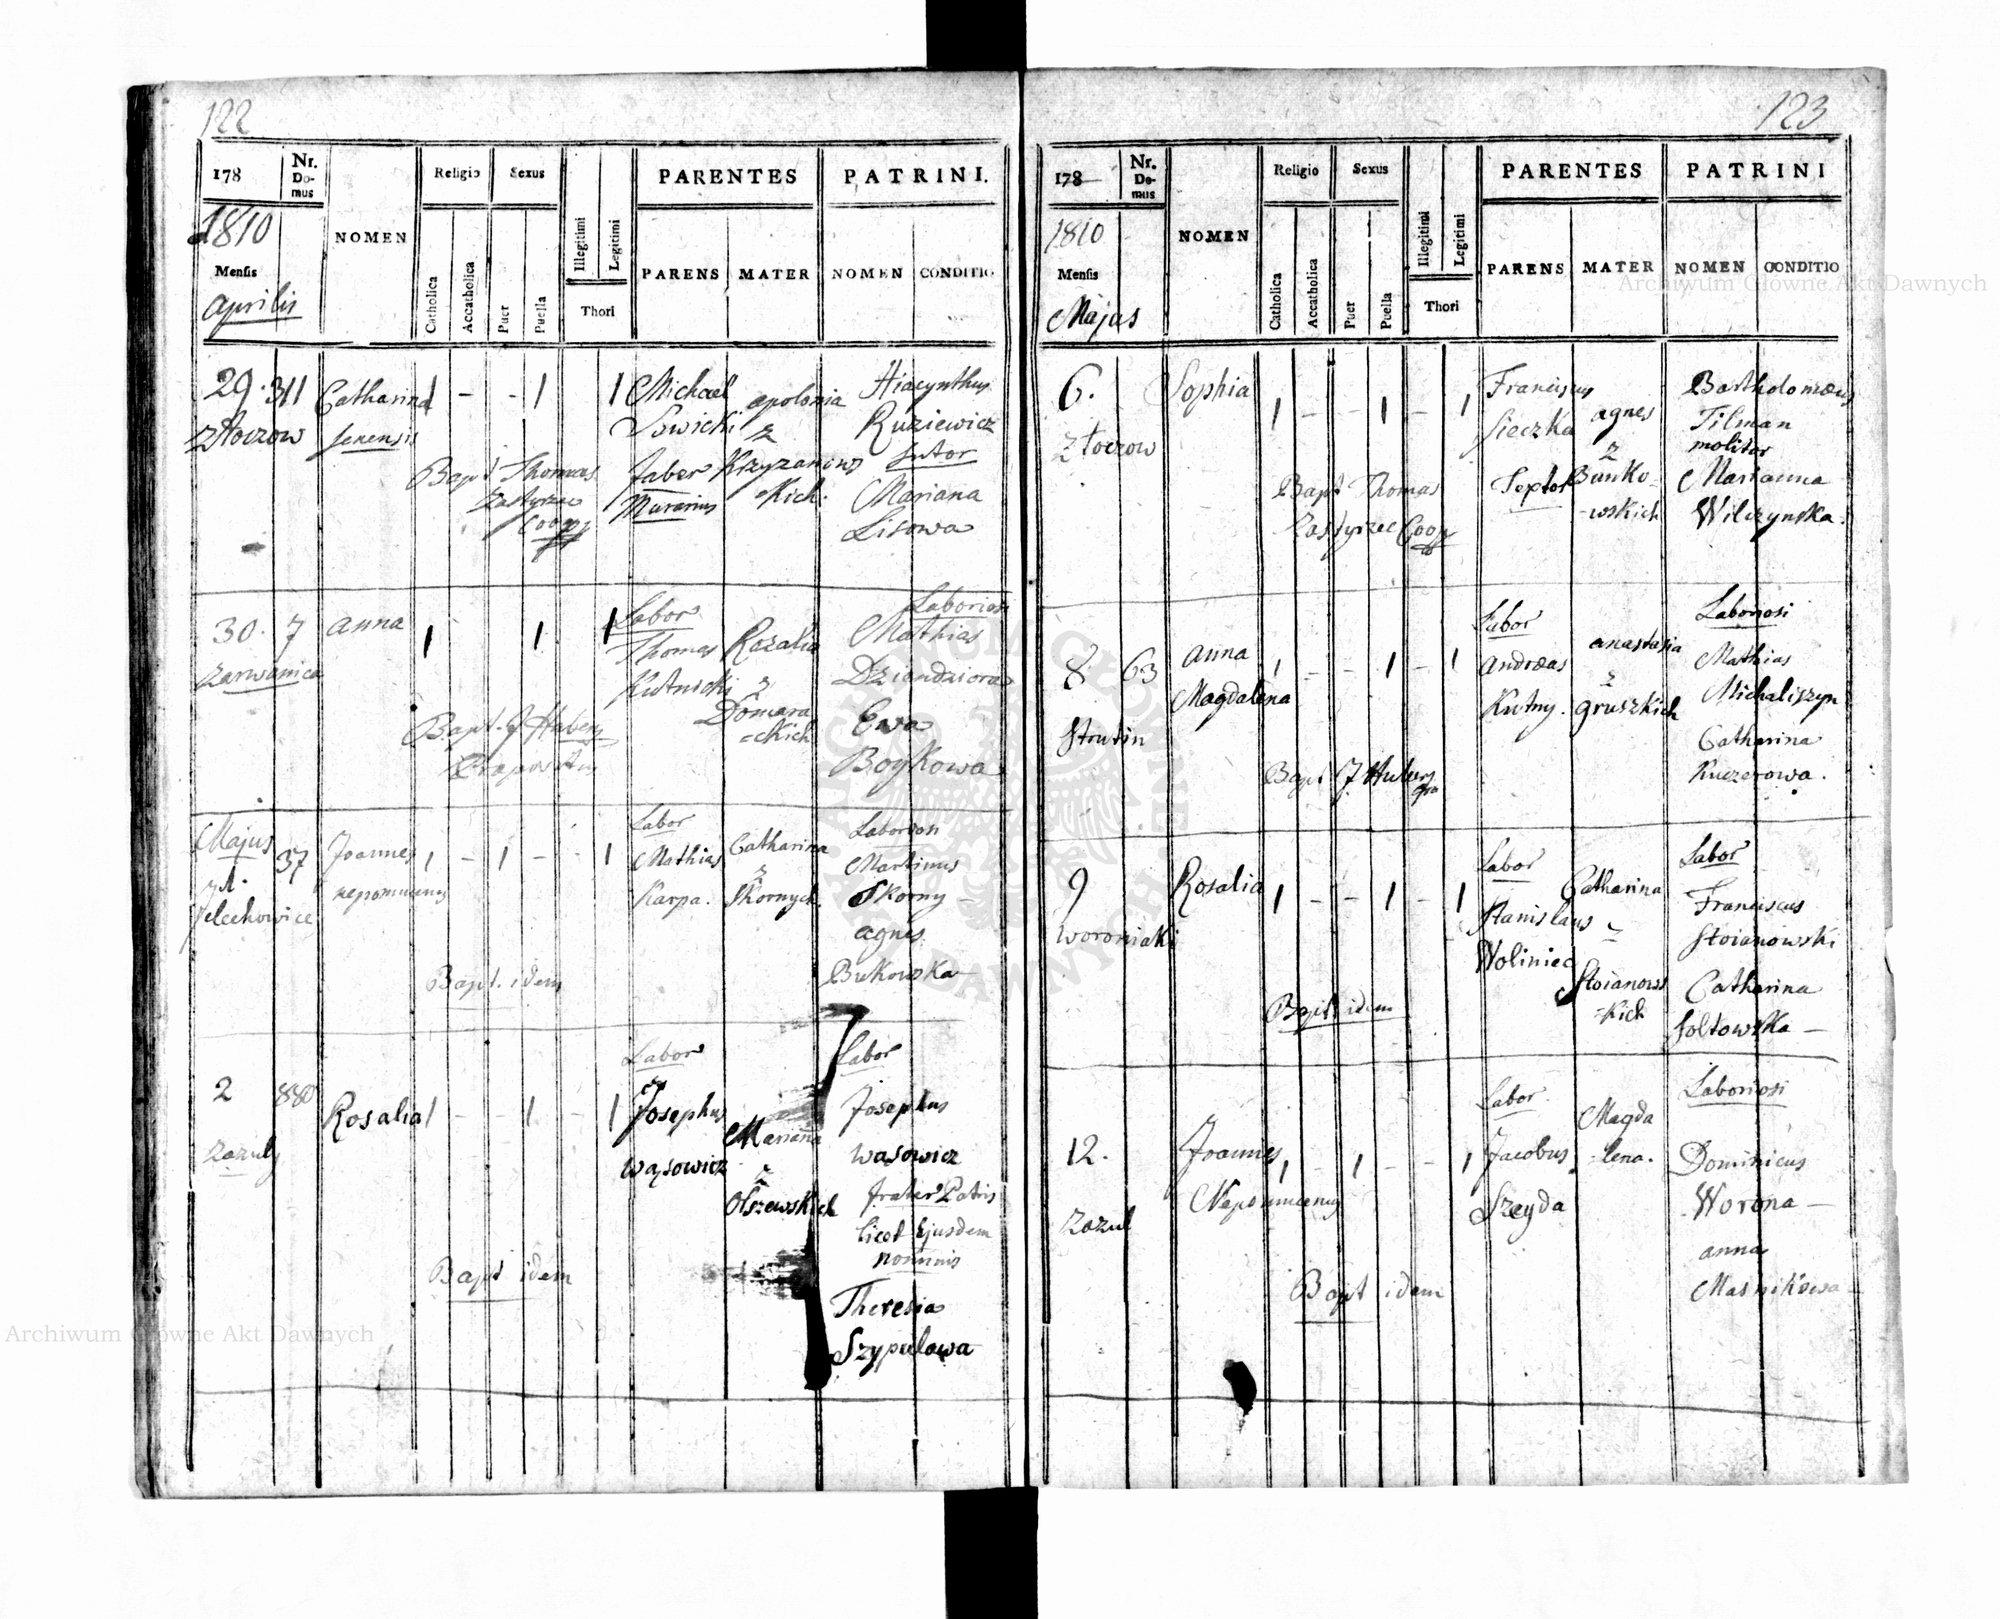 122
178
Nr. Domus
NOMEN
Religio
Sexus
Catholica
Accatholica
Puer
Puella
Illegitimi
Legitimi
Thori
PARENTES
PARENS
MATER
PATRINI.
NOMEN
CONDITIO
1810
Mensis
Aprilis
29. 311 Catharina 1 - - 1 1 Michael Apolonia Hiacynthus
Złoczow Senensis Sowicki z Ruziewicz
Bapt Thomas Faber Krzyzanow Sutor
Zastyrzec Murarius skich. Mariana
Coop Lisowa
30. 7 Anna 1 1 1 Labor Laboriosi
Zarwanica Thomas Rozalia Mathias
Kutnicki z Dziandziora
Domara Ewa
Bapt. J Habeny =ckich Boykowa
Praepositus
Majus 37 Joannes 1 - 1 - 1 Labor Catharina Laboriosi
Nepomucenus Mathias z Martinus
Jelechowice Karpa. Skornych. Skorny
Agnes
Bapt. idem Bukowska
2 880 Rosalia 1 - - 1 - 1 Labor Labor
Zazuly Josephus Mariana Josephus
Wąsowicz z Wasowicz
Olszewskich frater Patris
licet Ejusdem
Bapt idem nominis
Theresia
Szypulowa
123
178
Nr. Domus
NOMEN
Religio
Sexus
Catholica
Accatholica
Puer
Puella
Illegitimi
Legitimi
Thori
PARENTES
PARENS
MATER
PATRINI
NOMEN
CONDITIO
1810
Mensis
Majus
6. Sophia 1 - - 1 - 1 Franciscus Agnes Bartholomæus
Złoczow Sieczka z Tilman
molitor
Bapt Thomas Bunko- Marianna
Zastyrzec Coop -wskich Wilczynska.
8. 63 Anna 1 - - 1 - 1 Labor Anastasia Laboriosi
Magdalena Andræas z Mathias
Strutin Kutny. Gruszkich Michaliszyn
Catharina
Bapt J Kuczerowa.
9 Rosalia 1 - - 1 - 1 Labor Catharina Labor
Woroniaki Stanislaus z Franciscus
Woliniec Stoianows Stoianowski
-kich Catharina
Bapt idem Soltowska
12. Joannes 1 - 1 - - 1 Labor Magda Laboriosi
Nepomucenus Jacobus -lena. Dominicus
Zazul Szeyda Worona
Anna
Bapt idem Masnikowa
Archiwum Główne Akt Dawnych
Archiwum Główne Akt Dawnych
ARCHIWUM GŁÓWNE AKT DAWNYCH